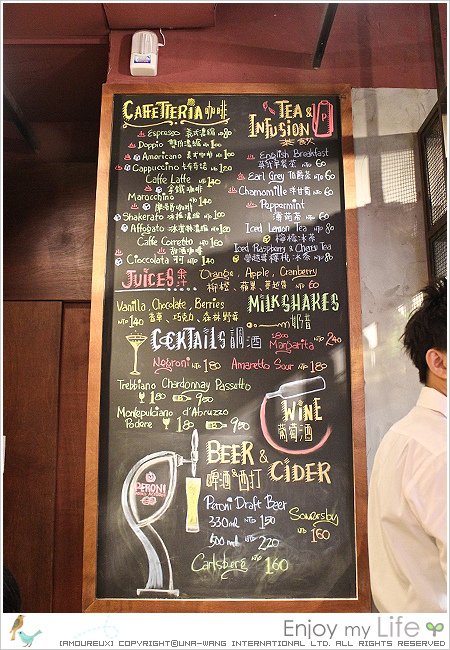 CAFFETTERIA 咖啡
Espresso 義式濃縮 NT 80
Doppio 雙份濃縮 NT 100
Americano 美式咖啡 NT 100
Cappuccino 卡布奇諾 NT 120
Caffe Latte NT 140
拿鐵咖啡
Marocchino NT 140
摩洛哥咖啡
Shakerato 冰搖濃縮 NT
Affogato 冰淇淋濃縮 NT
Caffe Corretto NT 160
香酒咖啡
Cioccolata 可可 NT 140
TEA & INFUSION
茶飲
English Breakfast
英式早餐茶 NT 60
Earl Grey 伯爵茶 NT 60
Chamomille 洋甘菊 NT 60
Peppermint
薄荷茶 NT 60
Iced Lemon Tea NT 80
檸檬冰茶
Iced Raspberry & Cherry Tea
NT 80
JUICES 果汁
Orange, Apple, Cranberry
柳橙、蘋果、蔓越莓 NT 60
MILKSHAKES
奶昔
Vanilla, Chocolate, Berries
NT 140 香草、巧克力、森林野莓
COCKTAILS 調酒
Margarita NT 240
Negroni NT 180
Amaretto Sour NT 180
WINE
葡萄酒
Trebbiano Chardonnay Passetto
180 950
Montepulciano d'Abruzzo
Podere 180 950
BEER & CIDER
啤酒&西打
PERONI
Peroni Draft Beer
330ml NT 150
500ml NT 220
Somersby
NT 160
Carlsberg NT 160
Enjoy my Life
{AMOUREUX} COPYRIGHT©UNA-WANG INTERNATIONAL LTD. ALL RIGHTS RESERVED